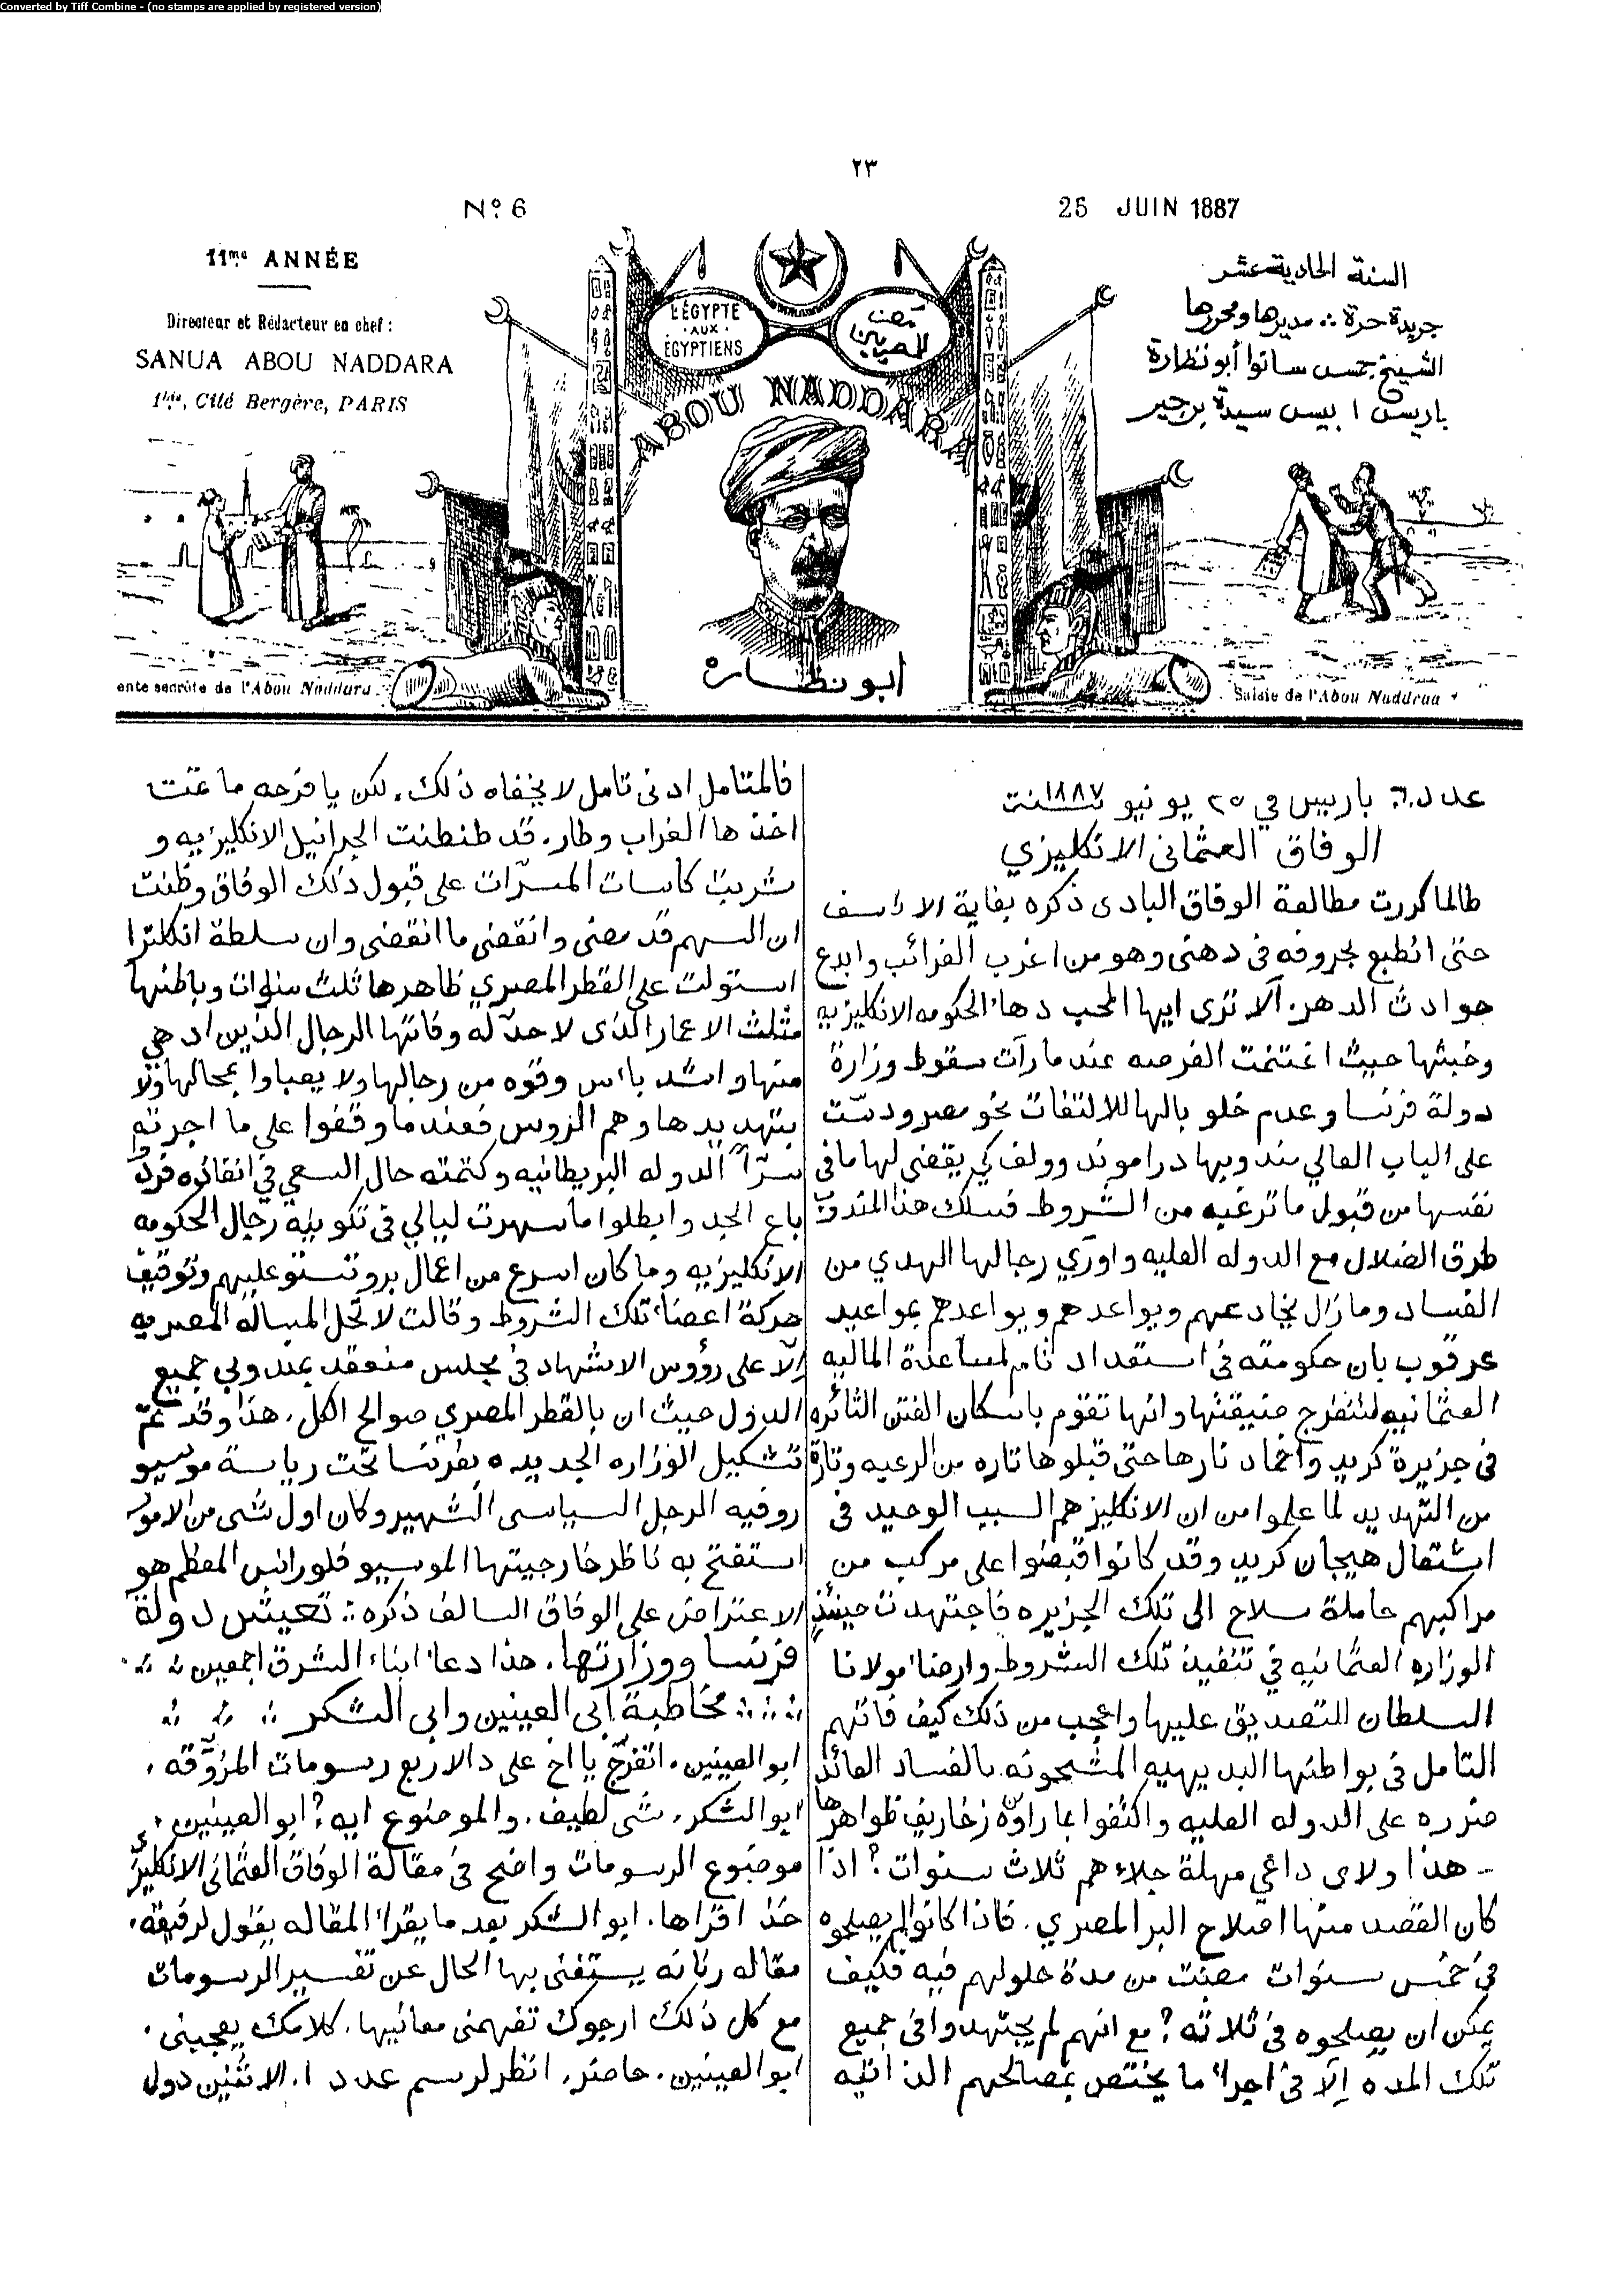 Converted by Tiff Combine - (no stamps are applied by registered version)
٢٣
Nº 6
25 JUIN 1887
11me ANNÉE
Directeur et Rédacteur en chef :
SANUA ABOU NADDARA
1bis, Cité Bergère, PARIS
L'ÉGYPTE
AUX
ÉGYPTIENS
مصر
للمصريين
ABOU NADDARA
السنة الحادية عشر
جريدة حرة ∴ مديرها ومحررها
الشيخ جمس سانوا أبو نظارة
باريس ١ بيس سيدة برجير
ابو نظاره
ente secrète de l'Abou Naddara
Saisie de l'Abou Naddraa
عدد ٦ باريس في ٢٥ يونيو سنت ١٨٨٧
الوفاق العثمانى الانكليزي
طالما كررت مطالعة الوفاق البادى ذكره بغاية الاسف
حتى انطبع بحروفه فى ذهنى وهو من اغرب الغرائب وابدع
حوادث الدهر. ألا ترى ايها المحب دهاء الحكومه الانكليزيه
وخبثها حيث اغتنمت الفرصه عند ما رآت سقوط وزارة
دولة فرنسا وعدم خلو بالها للالتفات نحو مصر ودست
على الباب العالي مندوبها دراموند وولف كي يقضى لها ما فى
نفسها من قبول ما ترغبه من الشروط فسلك هذا المندوب
طرق الضلال مع الدوله العليه واوري رجالها الهدي من
الفساد وما زال يخادعهم ويواعدهم ويواعدهم بمواعيد
عرقوب بان حكومته فى استعداد تام لمساعدة الماليه
العثمانيه لتنفرج ضيقتها وانها تقوم باسكان الفتن الثائره
فى جزيرة كريد واخماد نارها حتى قبلوها تاره من الرعبه وتارة
من التهديد لما علموا من ان الانكليز هم السبب الوحيد فى
اشتعال هيجان كريد وقد كانوا قبضوا على مركب من
مراكبهم حاملة سلاح الى تلك الجزيره فاجتهدت حينئذٍ
الوزاره العثمانيه في تنفيذ تلك الشروط وارضاء مولانا
السلطان للتصديق عليها واعجب من ذلك كيف فاتهم
التامل فى بواطنها البديهيه المشحونه بالفساد العائد
ضرره على الدوله العليه واكتفوا بما راوه من زخاريف ظواهرها
ـ هذا ولاى داعي مهلة جلاءهم ثلاث سنوات؟ اذا
كان القصد منها اصلاح البر المصري. فاذا كانوا لم يصلحوه
في خمس سنوات مضت من مدة حلولهم فيه فكيف
يمكن ان يصلحوه فى ثلاثه؟ مع انهم لم يجتهدوا فى جميع
تلك المده إلّا فى اجراء ما يختص بمصالحهم الذاتيه
فالمتامل ادنى تامل لا يخفاه ذلك. لكن يا فرحه ما تمت
اخذها الغراب وطار. قد طنطنت الجرانيل الانكليزيه و
شربت كاسات المسرّات على قبول ذلك الوفاق وظنت
ان السهم قد مضى وانقضى ما انقضى وان سلطة انكلترا
استولت على القطر المصري ظاهرها ثلث سنوات وباطنها
مثلث الاعمار الذى لا حدّ له وفاتها الرجال الذين ادهي
منها واشد باس وقوه من رجالها ولا يعباوا بمحالها ولا
بتهديدها وهم الروس فعندما وقفوا على ما اجرته
سرّاً الدوله البريطانيه وكتمته حال السعي في انفاذه فردوا
باع الجد وابطلوا ما سهرت ليالي فى تكوينه رجال الحكومه
الانكليزيه وما كان اسرع من اعمال بروتستو عليهم وتوقيف
حركة اعضاء تلك الشروط وقالت لا تحل المساله المصريه
إلّا على رؤوس الاشهاد فى مجلس منعقد بمندوبي جميع
الدول حيث ان بالقطر المصري صوالح الكل. هذا وقد تمّ
تشكيل الوزاره الجديده بفرنسا تحت رياسة موسيو
روفيه الرجل السياسى الشهير وكان اول شى من الامور
استفتح به ناظر خارجيتها الموسيو فلورانس المعظم هو
الاعتراض على الوفاق السالف ذكره ∴ تعيش دولة
فرنسا ووزارتها. هذا دعاء ابناء الشرق اجمعين ∴ ∴
∴ ∴ مخاطبة ابى العينين وابى الشكر ∴ ∴ ∴
ابو العينين. اتفرّج يا اخ على دالاربع رسومات المزوّقه.
ابو الشكر. شى لطيف. والموضوع ايه؟ ابو العينين.
موضوع الرسومات واضح فى مقالة الوفاق العثمانى الانكليزى
خذ اقراها. ابو الشكر بعد ما يقرا المقاله يقول لرفيقه.
مقاله رنانه يستغنى بها الحال عن تفسير الرسومات
مع كل ذلك ارجوك تفهمنى معانيها. كلامك يعجبنى.
ابو العينين. حاضر. انظر لرسم عدد ١. الاثنين دول